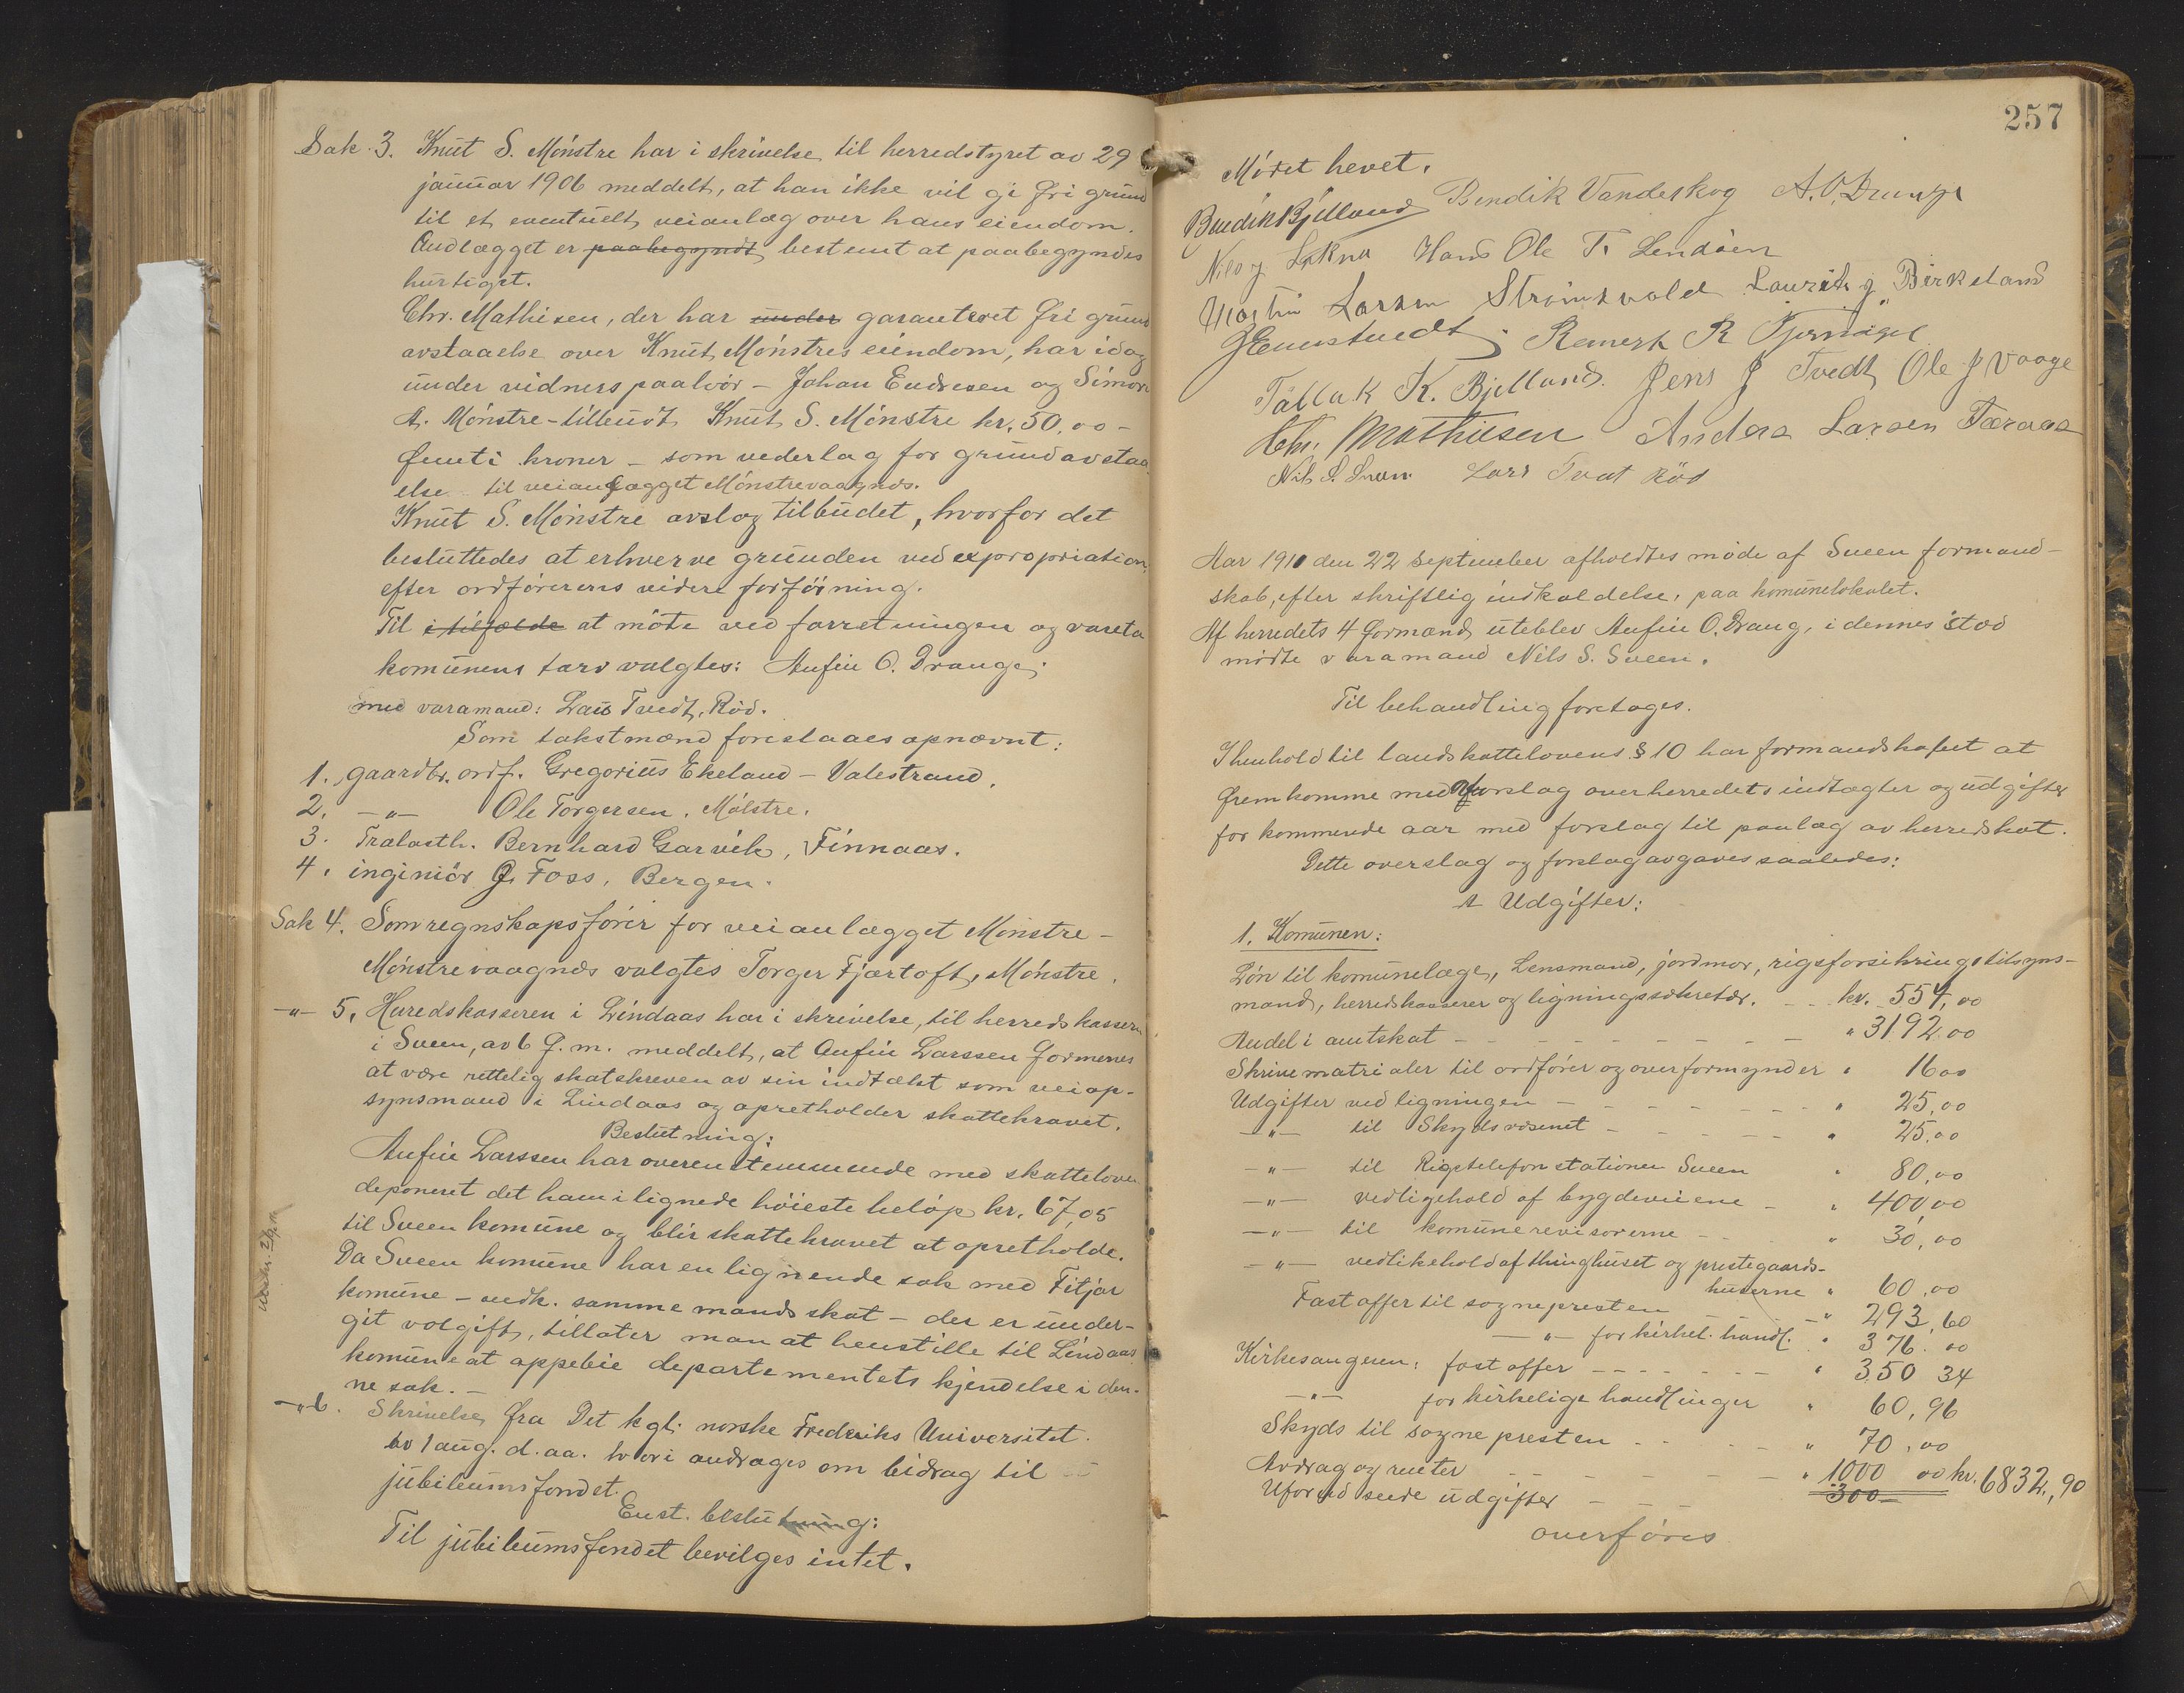 Sak. 3. Knut S. Mönstre har i skrivelse til herredstyret av 29
januar 1906 meddelt, at han ikke vil gi fri grund
til et eventuelt veianlæg over hans eiendom.
Anlægget er paabegyndt bestemt at paabegyndes
hurtigst.
Chr. Mathisen, der har under garanteret fri grund
avstaaelse over Knut Mönstres eiendom, har idag
under vidners paahör – Johan Endresen og Simon
A. Mönstre – tilbudt Knut S. Mönstre kr. 50.00 –
femti kroner – som vederlag for grundavstaa
else til veianlægget Mönstrevaagnæs.
Knut S. Mönstre avslog tilbudet, hvorfor det
besluttedes at erhverve grunden ved expropriation,
efter ordförerens videre forföining.
Til i tilfælde at möte ved forretningen og vareta
komunens tarv valgtes: Anfin O. Drange,
med varamand: Lars Tvedt, Röd.
Som takstmænd foreslaaes opnævnt:
1. gaardbr. ordf. Gregorius Ekeland – Valestrand.
2. –„– Ole Torgersen, Mölstre.
3. Tralasth. Bernhard Garvik, Finnaas.
4. ingeniör J. Foss, Bergen.
Sak 4. Som regnskapsförer for veianlægget Mönstre –
Mönstrevaagnæs valgtes Torger Fjærtoft, Mönstre.
–„– 5. Heredskasseren i Lindaas har i skrivelse, til herredskasseren
i Sveen, av 6 f.m. meddelt, at Anfin Larssen formenes
at være rettelig skatskreven av sin indtækt som veiop-
synsmand i Lindaas og opretholder skattekravet.
Beslutning:
Anfin Larssen har overenstemmende med skatteloven
deponeret det ham ilignede höieste belöp kr. 67,05
til Sveen komune og blir skattekravet at opretholde.
Da Sveen komune har en lignende sak med Fitjar
komune – vedk. samme mands skat – der er under-
git volgift, tillater man at henstille til Lindaas
komune at appebie departementets kjendelse i den-
ne sak. –
–„– 6. Skrivelse fra Det kgl. norske Frederiks Universitet
av 1 aug. d. aa. hvori andrages om bidrag til
jubileumsfondet.
Enst. beslutning:
Til jubileumsfondet bevilges intet.
257
Mödet hevet.
Bendik Bjelland Bendik Vandeskog A. O. Drange
Nils J. Lökna Hans Ole T. Lendöen
Martin Larsen Strömsvold Laurits J. Birkeland
Remerk R Tjernagel
Tallak K. Bjelland. Jens J Tvedt Ole J Vaage
Chr. Mathiesen Anders Larsen Færaas
Nils S. Sveen Lars Tvet Röd
Aar 1910 den 22 september afholdtes möde af Sveen formand-
skab, efter skriftlig indkaldelse, paa komunelokalet.
Af herredets 4 formænd uteblev Anfin O. Drang, i dennes stod
mödte varamand Nils S. Sveen.
Til behandling foretages.
I henhold til landskattelovens § 10 har formandskapet at
fremkomme med forslag over herredets indtægter og udgifter
for kommende aar med forslag til paalæg av herredskat.
Dette overslag og forslag avgaves saaledes:
A Udgifter:
1. Komunen:
Lön til komunelæge, Lensmand, jordmor, rigsforsikringstilsyns-
mand, herredskasserer og ligningssekretær. – – kr. 554,00
Andel i amtskat – – – „ 3192.00
Skrivematrialer til ordförer og overformynder „ 16 00
Udgifter ved ligningen – – – „ 25,00
–„– til Skydsvæsenet – – – „ 25.00
–„– til Rigstelefonstationen Sveen „ 80,00
–„– vedligehold af bygdeveiene – „ 400,00
–„– til komunerevisorerne – – „ 30,00
–„– vedlikehold af thinghuset og prestegaards-
huserne „ 60,00
Fast offer til sognepresten – „ 293,60
–„– for kirkel. handl. „ 376.00
Kirkesangeren: fast offer – – – „ 350 34
–„– for kirkelige handlinger „ 60,96
Skyds til sognepresten – – – „ 70,00
Avdrag og renter – – – „ 1000 00 kr. 6832,90
Uforudseede udgifter – – – 300 –
overföres